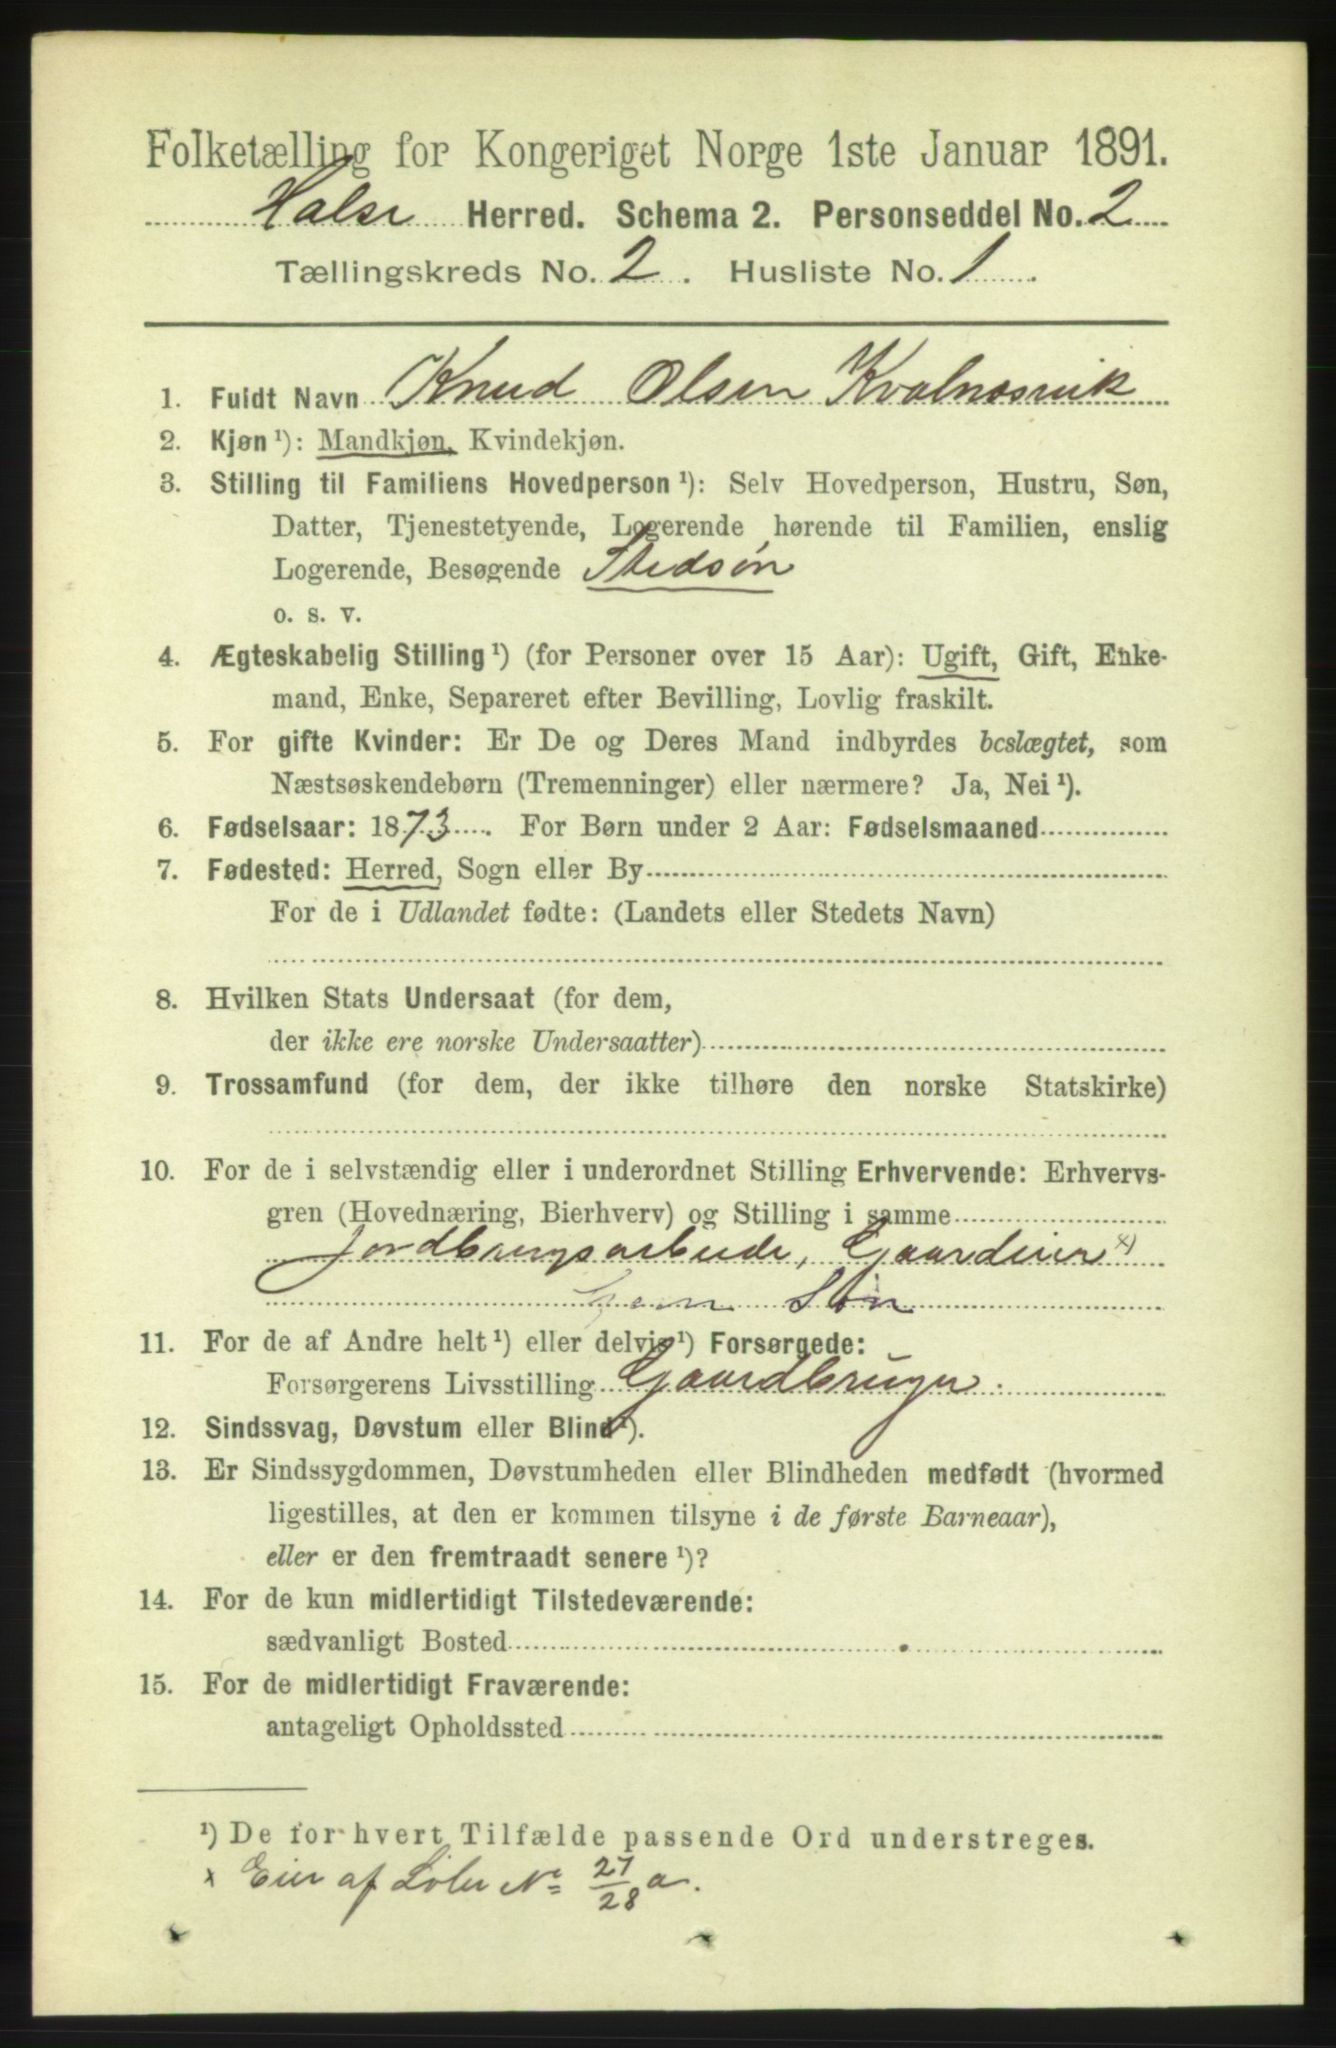 Folketælling for Kongeriget Norge 1ste Januar 1891.
Halse Herred. Schema 2. Personseddel No. 2
Tællingskreds No. 2. Husliste No. 1.
1. Fuldt Navn Knud Olsen Kvalnæsvik
2. Kjøn ¹): Mandkjøn, Kvindekjøn.
3. Stilling til Familiens Hovedperson ¹): Selv Hovedperson, Hustru, Søn,
Datter, Tjenestetyende, Logerende hørende til Familien, enslig
Logerende, Besøgende Stedsøn
o. s. v.
4. Ægteskabelig Stilling ¹) (for Personer over 15 Aar): Ugift, Gift, Enke-
mand, Enke, Separeret efter Bevilling, Lovlig fraskilt.
5. For gifte Kvinder: Er De og Deres Mand indbyrdes beslægtet, som
Næstsøskendebørn (Tremenninger) eller nærmere? Ja, Nei ¹).
6. Fødselsaar: 1873. For Børn under 2 Aar: Fødselsmaaned
7. Fødested: Herred, Sogn eller By
For de i Udlandet fødte: (Landets eller Stedets Navn)
8. Hvilken Stats Undersaat (for dem,
der ikke ere norske Undersaatter)
9. Trossamfund (for dem, der ikke tilhøre den norske Statskirke)
10. For de i selvstændig eller i underordnet Stilling Erhvervende: Erhvervs-
gren (Hovednæring, Bierhverv) og Stilling i samme
Jordbrugsarbeide, Gaardeier x)
Søn
11. For de af Andre helt ¹) eller delvis ¹) Forsørgede:
Forsørgerens Livsstilling Gaardbruger.
12. Sindssvag, Døvstum eller Blind ¹).
13. Er Sindssygdommen, Døvstumheden eller Blindheden medfødt (hvormed
ligestilles, at den er kommen tilsyne i de første Barneaar),
eller er den fremtraadt senere ¹)?
14. For de kun midlertidigt Tilstedeværende:
sædvanligt Bosted
15. For de midlertidigt Fraværende:
antageligt Opholdssted
¹) De for hvert Tilfælde passende Ord understreges.
x Eier af Løber No 27/28 a.